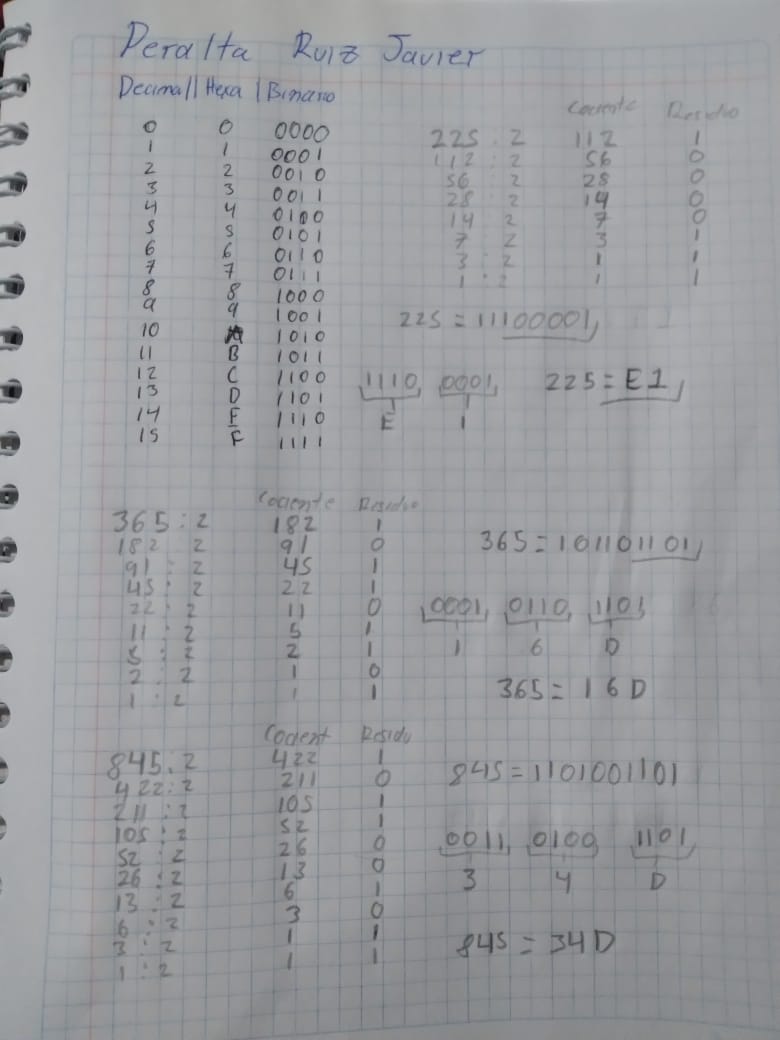 Peralta Ruiz Javier
Decimal | Hexa | Binario
0 0 0000
1 1 0001
2 2 0010
3 3 0011
4 4 0100
5 5 0101
6 6 0110
7 7 0111
8 8 1000
9 9 1001
10 A 1010
11 B 1011
12 C 1100
13 D 1101
14 E 1110
15 F 1111
Cociente Residuo
225 : 2 112 1
112 : 2 56 0
56 : 2 28 0
28 : 2 14 0
14 : 2 7 0
7 : 2 3 1
3 : 2 1 1
1 : 2 1 1
225 = 11100001
1110 0001 225 = E1
E 1
Cociente Residuo
365 : 2 182 1
182 2 91 0
91 : 2 45 1
45 : 2 22 1
22 : 2 11 0
11 : 2 5 1
5 : 2 2 1
2 : 2 1 0
1 : 2 1 1
365 = 101101101
0001 0110 1101
1 6 D
365 = 16D
Cocient Residu
845 : 2 422 1
422 : 2 211 0
211 : 2 105 1
105 : 2 52 1
52 : 2 26 0
26 : 2 13 0
13 : 2 6 1
6 : 2 3 0
3 : 2 1 1
1 : 2 1 1
845 = 1101001101
0011 0100 1101
3 4 D
845 = 34D